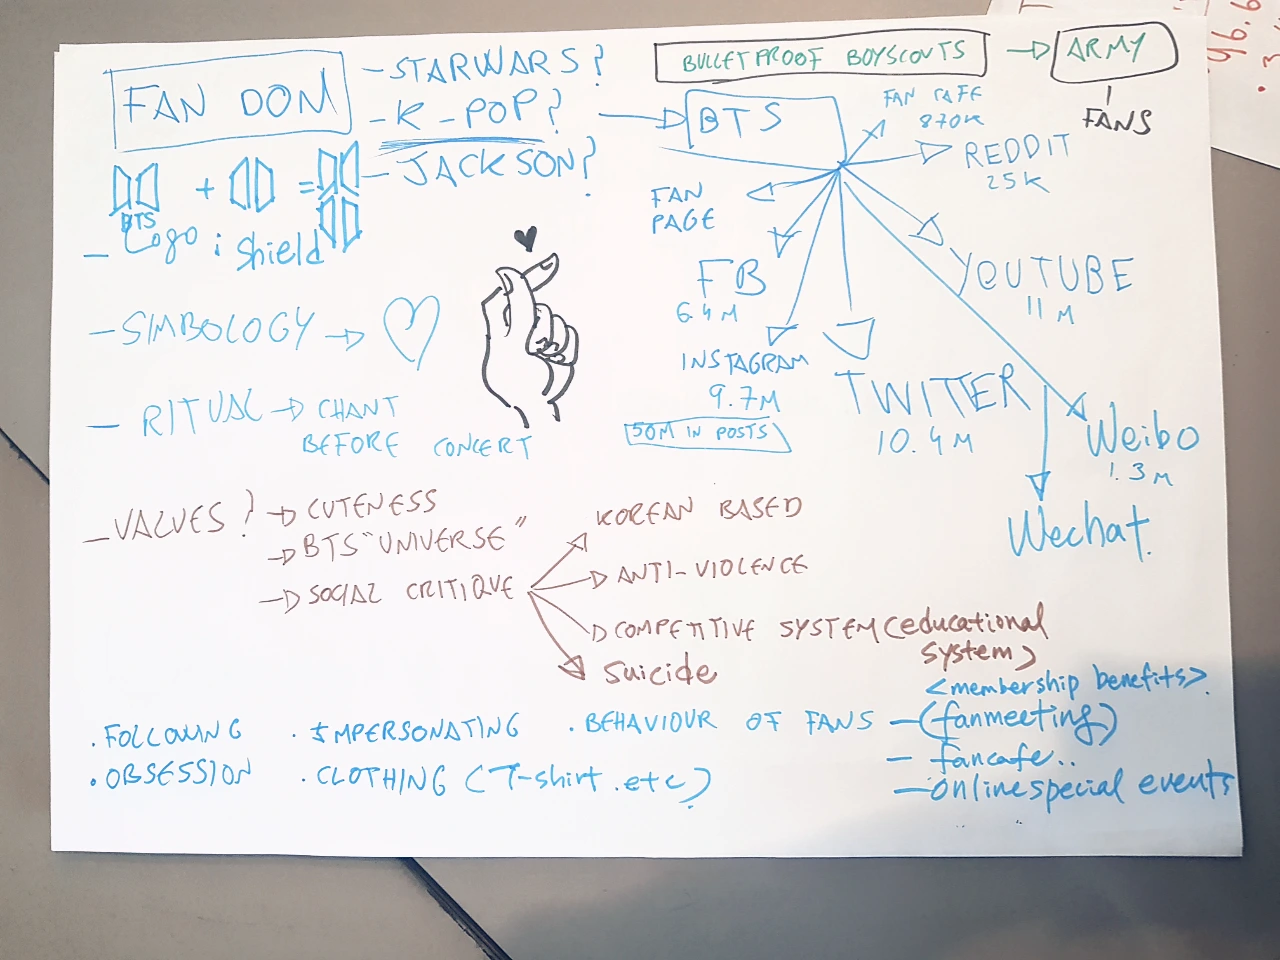 FAN DOM
- STARWARS?
- K-POP?
- JACKSON?
BULLETPROOF BOYSCOUTS
ARMY
FANS
BTS
FAN CAFE
870K
REDDIT
25K
FAN
PAGE
FB
6.4M
INSTAGRAM
9.7M
50M IN POSTS
TWITTER
10.4M
YOUTUBE
11M
Weibo
1.3M
Wechat.
+ =
BTS
- Logo : Shield
- SIMBOLOGY
- RITUAL → CHANT
BEFORE CONCERT
- VALUES? → CUTENESS
→ BTS "UNIVERSE"
→ SOCIAL CRITIQUE
KOREAN BASED
ANTI-VIOLENCE
COMPETITIVE SYSTEM (educational
system)
Suicide
. FOLLOWING
. OBSESSION
. IMPERSONATING
. CLOTHING (T-shirt.etc)
. BEHAVIOUR OF FANS
<membership benefits>.
- (fanmeeting)
- fancafe..
- online special events
46.6